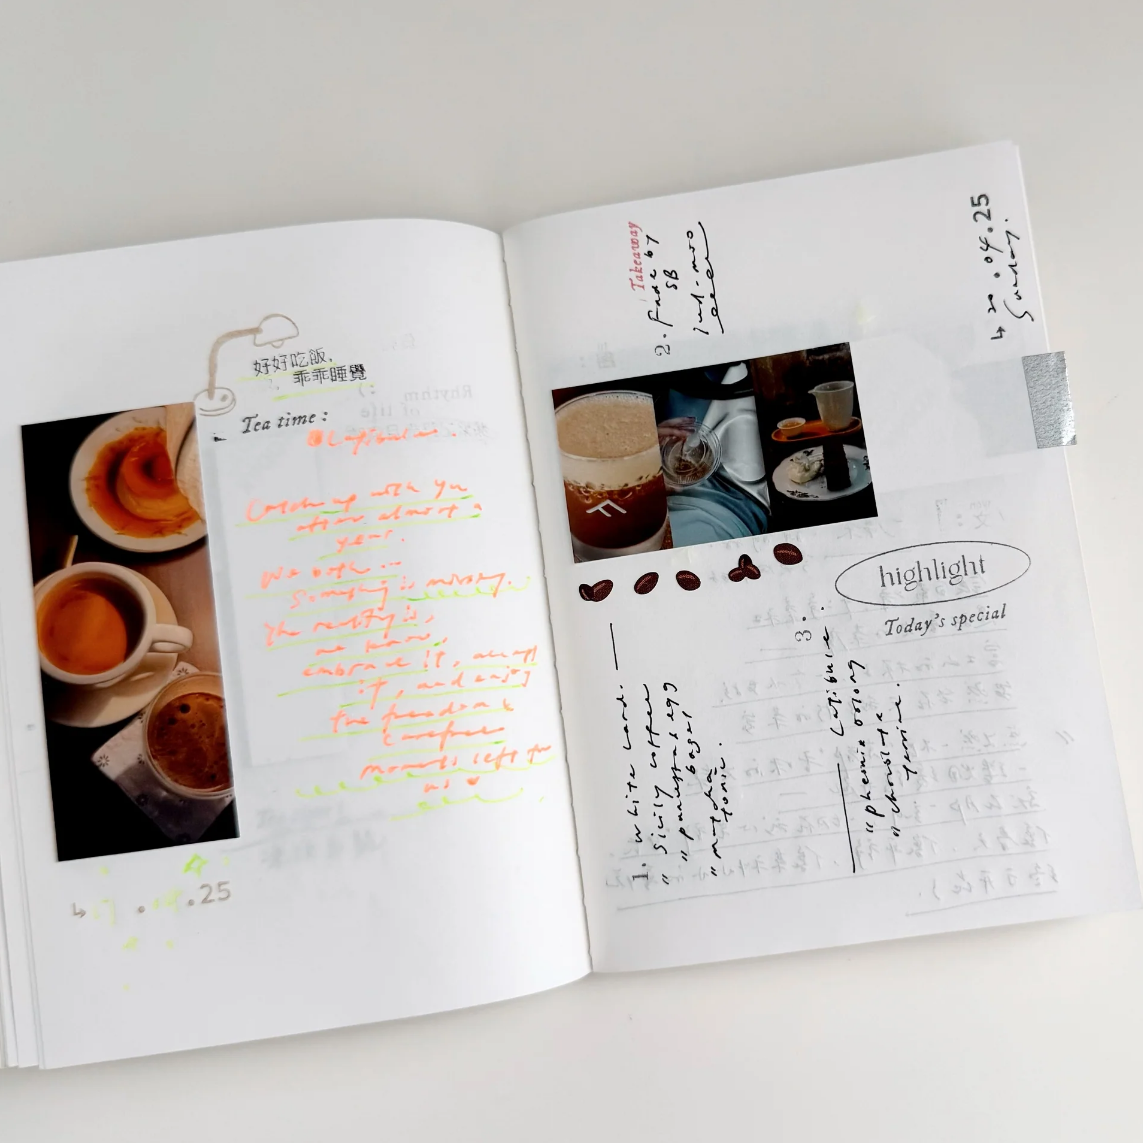 好好吃飯,
乖乖睡覺
Tea time:
@Lafibule.
Catch up with you
after almost a
year.
We both ...
Something is missing.
The reality is,
we know,
embrace it, accept
it, and enjoy
the freedom &
carefree
moments left for
us
.25
Takeaway
2. Fade by
SB
20.04.25
Sunday.
highlight
Today's special
1. White Land.
" Sicily coffee
bagel
" matcha
tonic.
3.
Lafibule
oolong
" chocolate
Terrine.